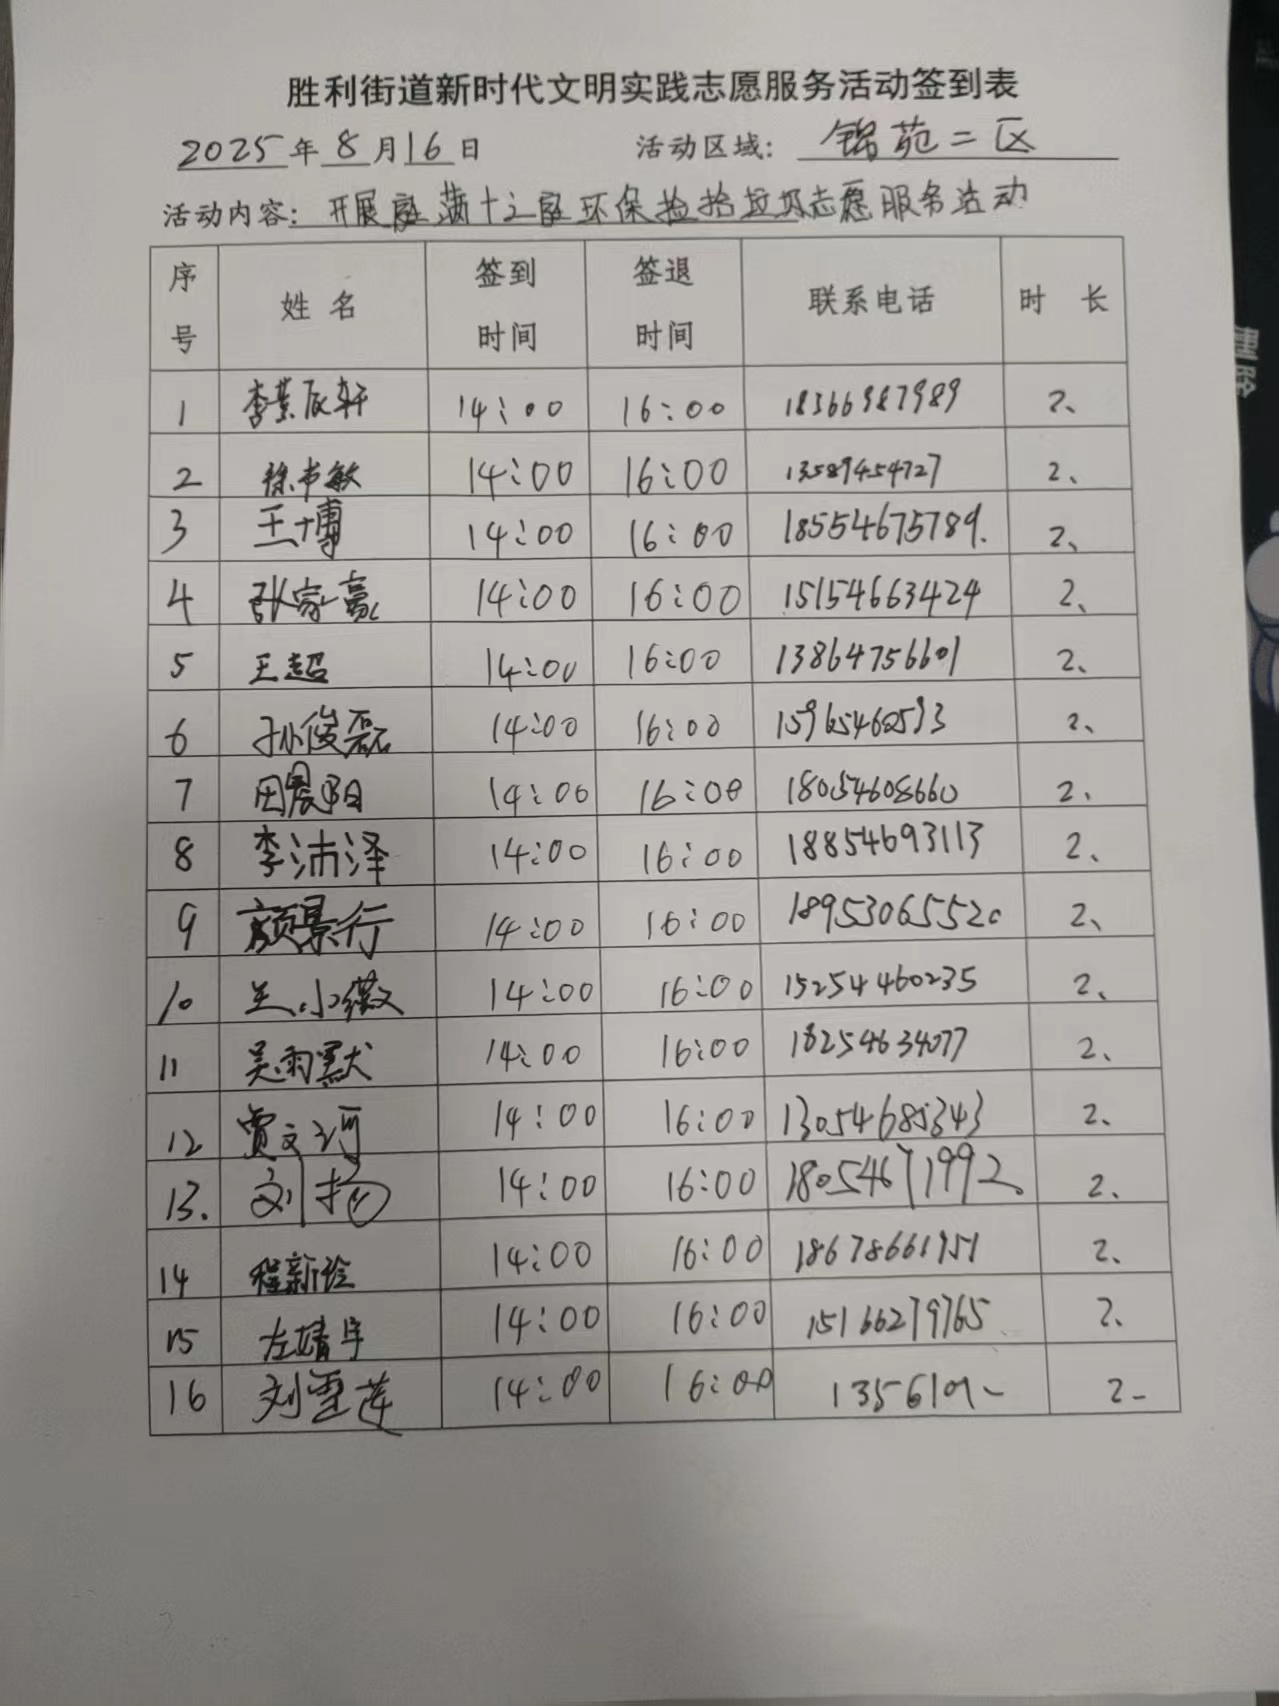 胜利街道新时代文明实践志愿服务活动签到表
2025年8月16日 活动区域: 锦苑二区
活动内容: 开展庭满十之庭环保捡拾垃圾志愿服务活动
序号 姓名 签到时间 签退时间 联系电话 时长
1 李景辰轩 14:00 16:00 18366987989 2、
2 徐书敏 14:00 16:00 13589454727 2、
3 王博 14:00 16:00 18554675789. 2、
4 张家豪 14:00 16:00 15154663424 2、
5 王超 14:00 16:00 13864756601 2、
6 孙俊磊 14:00 16:00 15965460593 2、
7 田晨阳 14:00 16:00 18054608660 2、
8 李沛泽 14:00 16:00 18854693113 2、
9 颜景行 14:00 16:00 18953065520 2、
10 兰小薇 14:00 16:00 15254460235 2、
11 吴雨默 14:00 16:00 18254634077 2、
12 贾文河 14:00 16:00 13054685343 2、
13. 刘扬 14:00 16:00 18054671992、 2、
14 程新 14:00 16:00 18678661951 2、
15 左靖宇 14:00 16:00 15166279765 2、
16 刘雪莲 14:00 16:00 2-